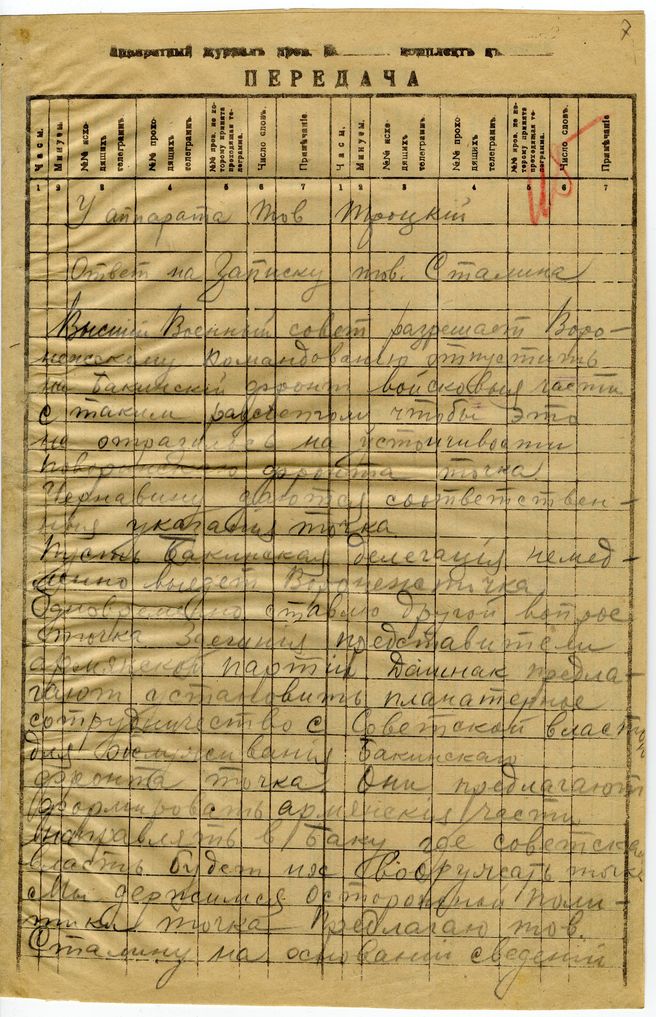 7
Аппаратный журналъ пров. № комплектъ къ
ПЕРЕДАЧА
Часы. Минуты. №№ исходящихъ телеграммъ. №№ проходящихъ телеграммъ. №№ пров. по которому принята проходящая телеграмма. Число словъ. Примѣчаніе Часы. Минуты. №№ исходящихъ телеграммъ. №№ проходящихъ телеграммъ. №№ пров. по которому принята проходящая телеграмма. Число словъ. Примѣчаніе
1 2 3 4 5 6 7 1 2 3 4 5 6 7
У аппарата тов Троцкій
Ответ на Записку тов. Сталина
Высшій Военный совет разрешает Воро-
нежскому командованию отпустить
на Бакинскій фронт войсковыя части
с таким рассчетом чтобы это
не отразилось на устойчивости
фронта точка
Чернавину даются соответствен-
ныя указания точка
Пусть Бакинская делегація немед-
ленно выедет Воронеж точка
Одновременно ставлю другой вопрос
точка Здешния представители
армянской партіи Дашнак предла-
гают установить планатерное
сотрудничество с Советской властью
для Бакинскаго
фронта точка Они предлагают
формировать армянскія части
направлять в Баку где советская
власть будет их вооружать точка
Мы держимся осторожной поли-
тики точка Предлагаю тов.
Сталину на основаніи сведений